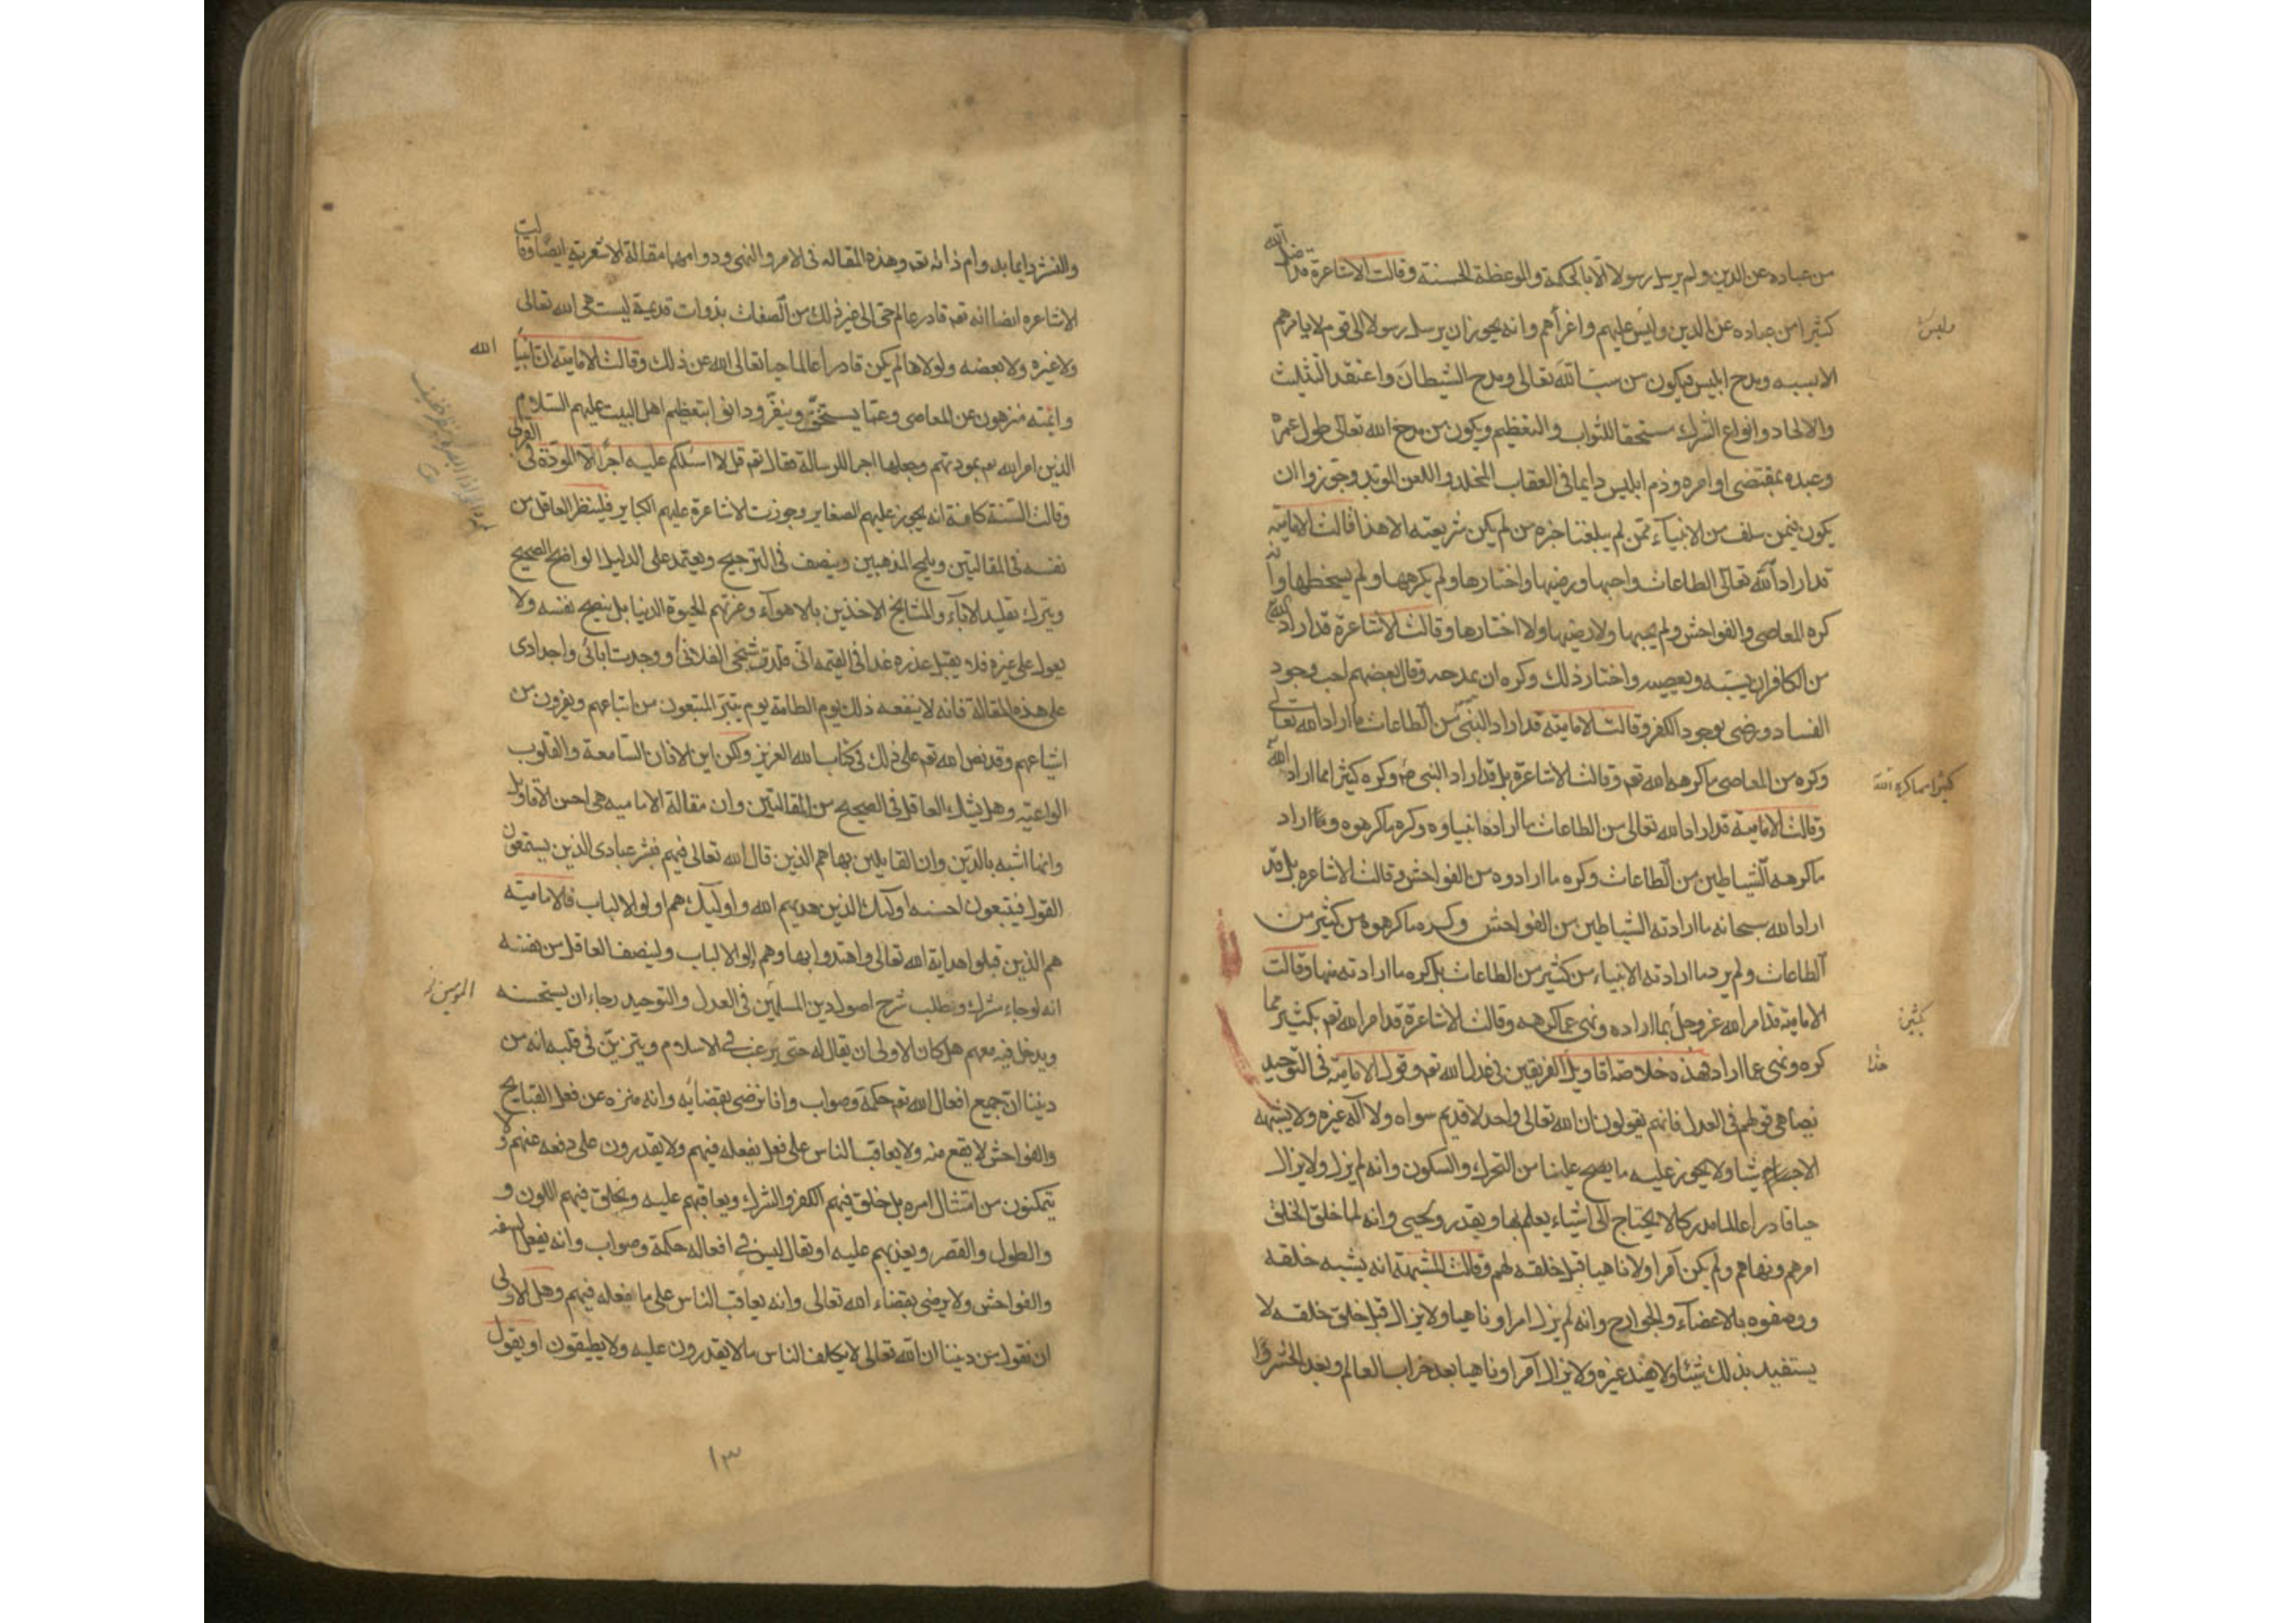 من عباده عن الدين ولم يرسل رسولا الا بالحكمة والموعظة الحسنة وقالت الاشاعرة قد اضل الله
كثيرا من عباده عن الدين ولبس عليهم واغراهم وانه يجوز ان يرسل رسولا الى قوم لا يامرهم
الا بسبه ومدح ابليس فيكون من سب الله تعالى ومدح الشيطان واعتقد التثليث
والالحاد وانواع الشرك مستحقا للثواب والتعظيم ويكون من مدح الله تعالى طول عمره
وعبده بمقتضى اوامره وذم ابليس دايما فى العقاب المخلد واللعن الموبد وجوزوا ان
يكون فيمن سلف من الانبياء ممن لم يبلغنا خبره من لم يكن شريعته الا هذا قالت الامامية
قد اراد الله تعالى الطاعات واحبها ورضيها واختارها ولم يكرهها ولم يسخطها وانه
كره المعاصى والفواحش ولم يحبها ولا رضيها ولا اختارها وقالت الاشاعرة قد اراد الله
من الكافر ان يسبه ويعصيه واختار ذلك وكره ان يمدحه وقال بعضهم احب وجود
الفساد ورضى بوجود الكفر وقالت الامامية قد اراد النبى من الطاعات ما اراد الله تعالى
وكره من المعاصى ما كرهه الله تع وقالت الاشاعرة بل قد اراد النبى ص وكره كثيرا مما اراد الله
وقالت الامامية قد اراد الله تعالى من الطاعات ما اراده انبياوه وكره ما كرهوه وما اراد
ما كرهه الشياطين من الطاعات وكره ما ارادوه من الفواحش وقالت الاشاعره بل قد
اراد الله سبحانه ما ارادته الشياطين من الفواحش وكره ما كرهوه من كثير من
الطاعات ولم يرد ما ارادته الانبياء من كثير من الطاعات بل كره ما ارادته منها وقالت
الامامية قد امر الله عز وجل بما اراده ونهى عما كرهه وقالت الاشاعرة قد امر الله تع بكثير مما
كره ونهى عما اراد فهذه خلاصة اقاويل الفريقين فى عدل الله تع وقول الامامية فى التوحيد
يضاهى قولهم فى العدل فانهم يقولون ان الله تعالى واحد لا قديم سواه ولا اله غيره ولا يشبه
الاجسام شيا ولا يجوز عليه ما يصح علينا من التحرك والسكون وانه لم يزل ولا يزال
حيا قادرا عالما مدركا لا يحتاج الى اشياء يعلم بها ويقدر ويحيى وانه لما خلق الخلق
امرهم ونهاهم ولم يكن آمرا ولا ناهيا قبل خلقه لهم وقالت المشبهة انه يشبه خلقه
ووصفوه بالاعضاء والجوارح وانه لم يزل امرا وناهيا ولا يزال قبل خلق خلقه لا
يستفيد بذلك شيئا ولا يفيد غيره ولا يزال آمرا وناهيا بعد خراب العالم وبعد الحشر وا
ولبس
كثيرا مما كره الله
كثير
هذا
والنشر دايما بدوام ذاته تع وهذه المقاله فى الامر والنهى ودوامهما مقالة الاشعرية ايضا وقالت
الاشاعره ايضا انه تع قادر عالم حى الى غير ذلك من الصفات بذوات قديمة ليست هى الله تعالى
ولا غيره ولا بعضه ولولاها لم يكن قادرا عالما حيا تعالى الله عن ذلك وقالت الامامية ان انبيا
وائمته منزهون عن المعاصى وعما يستخف وينفر ودانوا بتعظيم اهل البيت عليهم السلام
الذين امر الله تع بمودتهم وجعلها اجر الرسالة فقال تع قل لا اسئلكم عليه اجرا الا المودة فى القربى
وقالت السنة كافة انه يجوز عليهم الصغاير وجوزت الاشاعرة عليهم الكباير فلينظر العاقل من
نفسه فى المقالتين ويلمح المذهبين وينصف فى الترجيح ويعتمد على الدليل الواضح الصحيح
ويترك تقليد الاباء والمشايخ الاخذين بالاهواء وغرتهم الحيوة الدنيا بل ينصح نفسه ولا
يعول على غيره فلا يقبل عذره غدا فى القيمه انى قلدت شيخى الفلانى او وجدت ابائى واجدادى
على هذه المقالة فانه لا ينفعه ذلك يوم الطامة يوم يتبرّ المتبعون من اتباعهم ويفرون من
اشياعهم وقد نص الله تع على ذلك فى كتاب الله العزيز ولكن اين الاذان السامعة والقلوب
الواعيه وهل يشك العاقل فى الصحيح من المقالتين وان مقالة الاماميه هى احسن الاقاويل
وانها اشبه بالدين وان القايلين بها هم الذين قال الله تعالى فيهم فبشر عبادى الذين يستمعون
القول فيتبعون احسنه اولئك الذين هديهم الله واولئك هم اولوا الالباب فالامامية
هم الذين قبلوا هداية الله تعالى واهتدوا بها وهم اولوا الالباب ولينصف العاقل من نفسه
انه لو جاء مشرك وطلب شرح اصول دين المسلمين فى العدل والتوحيد رجاء ان يستحسنه
ويدخل فيه معهم هل كان الاولى ان يقال له حتى يرغب فى الاسلام ويتزين فى قلبه انه من
ديننا ان جميع افعال الله تع حكمة وصواب وانا نرضى بقضائه وانه منزه عن فعل القبايح
والفواحش لا يقع منه ولا يعاقب الناس على فعل يفعله فيهم ولا يقدرون على دفعه عنهم ولا
يتمكنون من امتثال امره بل خلق فيهم الكفر والشرك ويعاقبهم عليه ويخلق فيهم اللون و
والطول والقصر ويعذبهم عليه او يقال ليس فى افعاله حكمة وصواب وانه يفعل السفه
والفواحش ولا يرضى بقضاء الله تعالى وانه يعاقب الناس على ما فعله فيهم وهل الاولى
ان نقول من ديننا ان الله تعالى لا يكلف الناس ما لا يقدرون عليه ولا يطيقون او يقول
الله
١٣